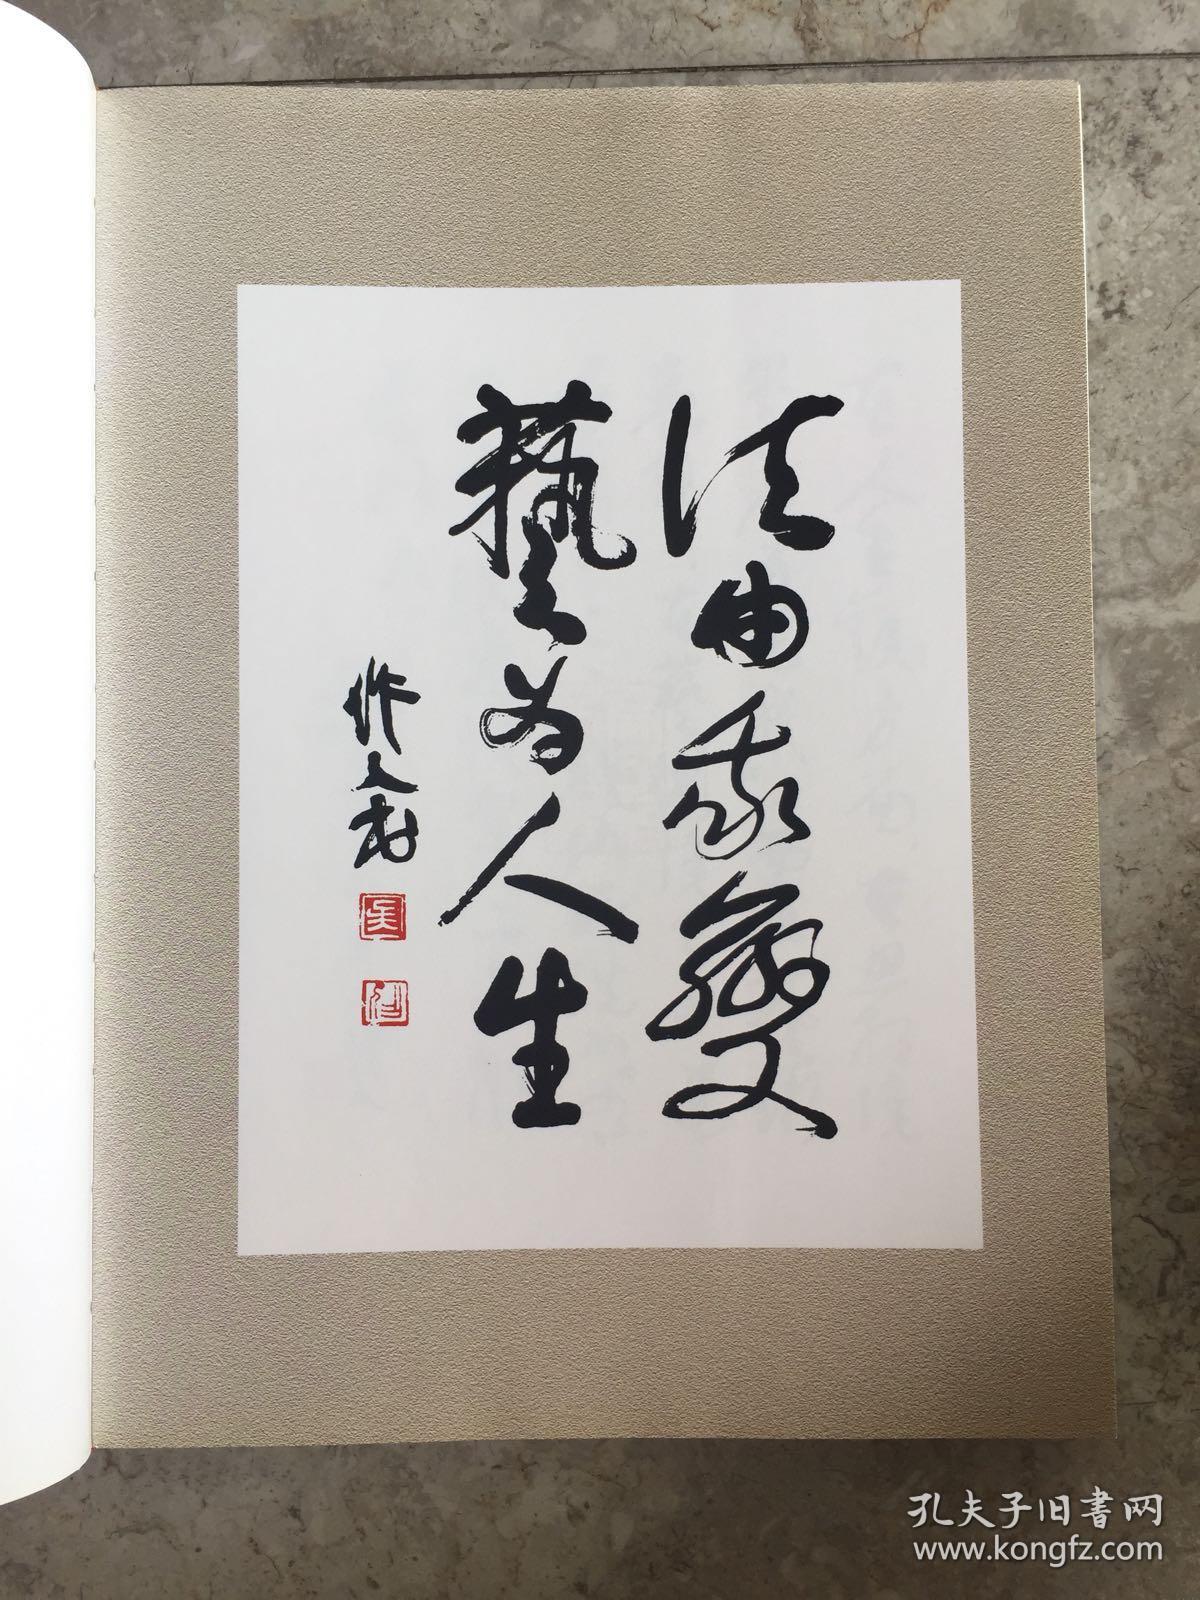 法由我變
藝為人生
作人書
吳
孔夫子旧书网
www.kongfz.com